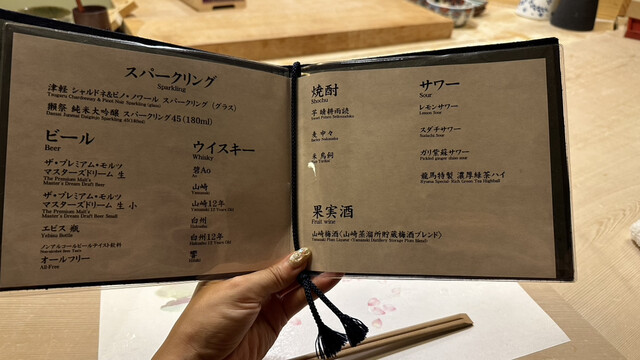 スパークリング
Sparkling
津軽 シャルドネ&ピノ・ノワール スパークリング (グラス)
Tsugaru Chardonnay & Pinot Noir Sparkling (glass)
獺祭 純米大吟醸 スパークリング45 (180ml)
Dassai Junmai Daiginjo Sparkling 45 (180ml)
ビール
Beer
ザ・プレミアム・モルツ
マスターズドリーム 生
The Premium Malt's
Master's Dream Draft Beer
ザ・プレミアム・モルツ
マスターズドリーム 生 小
The Premium Malt's
Master's Dream Draft Beer Small
エビス 瓶
Yebisu Bottle
ノンアルコールビールテイスト飲料
オールフリー
All-Free
ウイスキー
Whisky
碧Ao
Ao
山崎
Yamazaki
山崎12年
Yamazaki 12 Years Old
白州
Hakushu
白州12年
Hakushu 12 Years Old
響
Hibiki
焼酎
Shochu
芋 晴耕雨読
麦 中々
米 鳥飼
果実酒
Fruit wine
山崎梅酒(山崎蒸溜所貯蔵梅酒ブレンド)
Yamazaki Plum Liqueur (Yamazaki Distillery Storage Plum Blend)
サワー
Sour
レモンサワー
Lemon Sour
スダチサワー
Sudachi Sour
ガリ紫蘇サワー
Pickled ginger shiso sour
龍馬特製 濃厚緑茶ハイ
Ryoma Special Rich Green Tea Highball